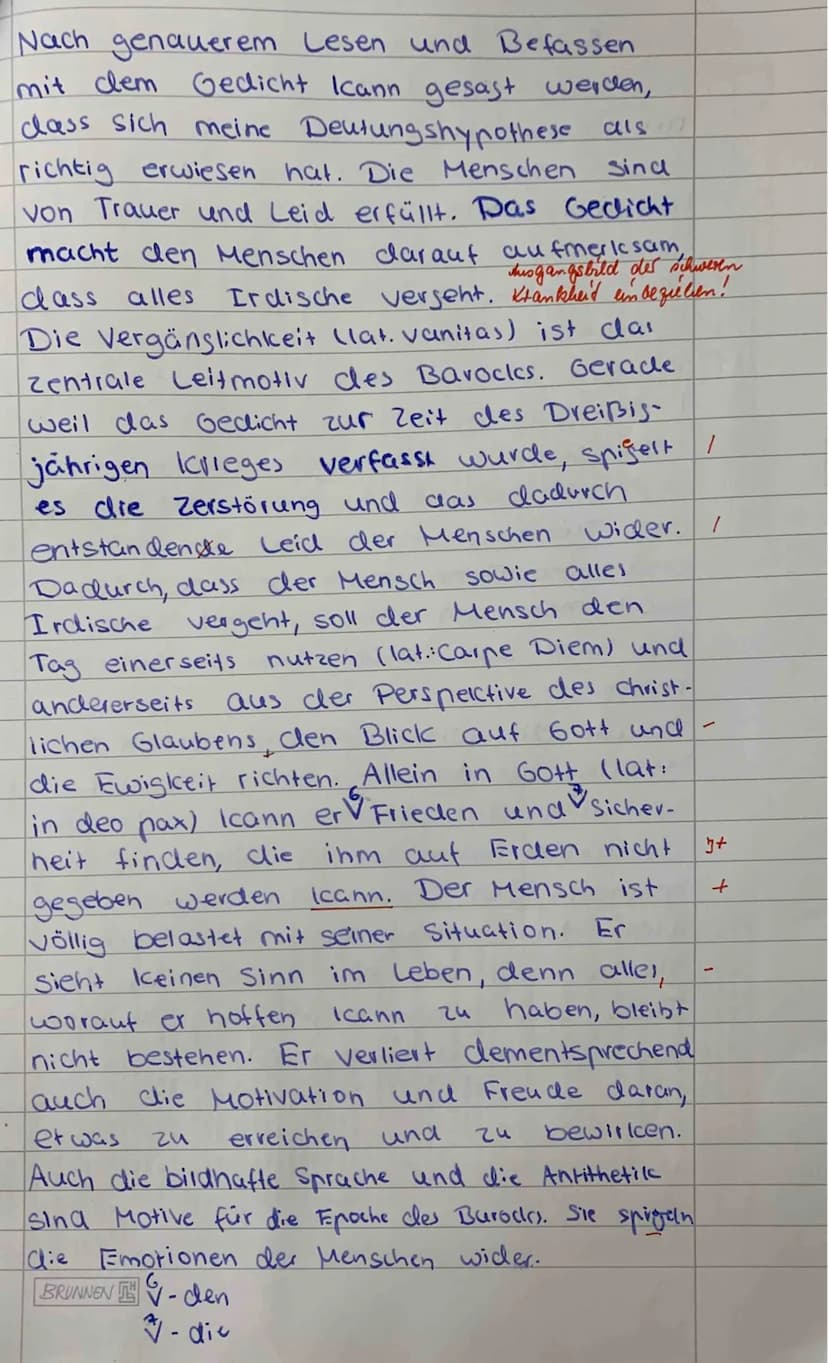 Nach genauerem Lesen und Befassen
mit dem Gedicht kann gesagt werden,
dass sich meine Deutungshypothese als
richtig erwiesen hat. Die Menschen sind
von Trauer und Leid erfüllt. Das Gedicht
macht den Menschen darauf aufmerksam,
Ausgangsbild der schweren
dass alles Irdische vergeht. Krankheit einbeziehen!
Die Vergänglichkeit (lat. vanitas) ist das
zentrale Leitmotiv des Barocks. Gerade
weil das Gedicht zur Zeit des Dreißig-
jährigen Krieges verfasst wurde, spigelt /
es die Zerstörung und das dadurch
entstandende Leid der Menschen wider. /
Dadurch, dass der Mensch sowie alles
Irdische vergeht, soll der Mensch den
Tag einerseits nutzen (lat.: Carpe Diem) und
andererseits aus der Perspektive des christ-
lichen Glaubens, den Blick auf Gott und -
die Ewigkeit richten. Allein in Gott (lat:
in deo pax) kann er 6V Frieden und 7V Sicher-
heit finden, die ihm auf Erden nicht
gegeben werden kann. Der Mensch ist +
völlig belastet mit seiner Situation. Er
sieht keinen Sinn im Leben, denn alles, -
worauf er hoffen kann zu haben, bleibt
nicht bestehen. Er verliert dementsprechend
auch die Motivation und Freude daran,
etwas zu erreichen und zu bewirken.
Auch die bildhafte Sprache und die Antithetik
sind Motive für die Epoche des Barocks. Sie spigeln
die Emotionen der Menschen wider.
BRUNNEN 6V - den
7V - die